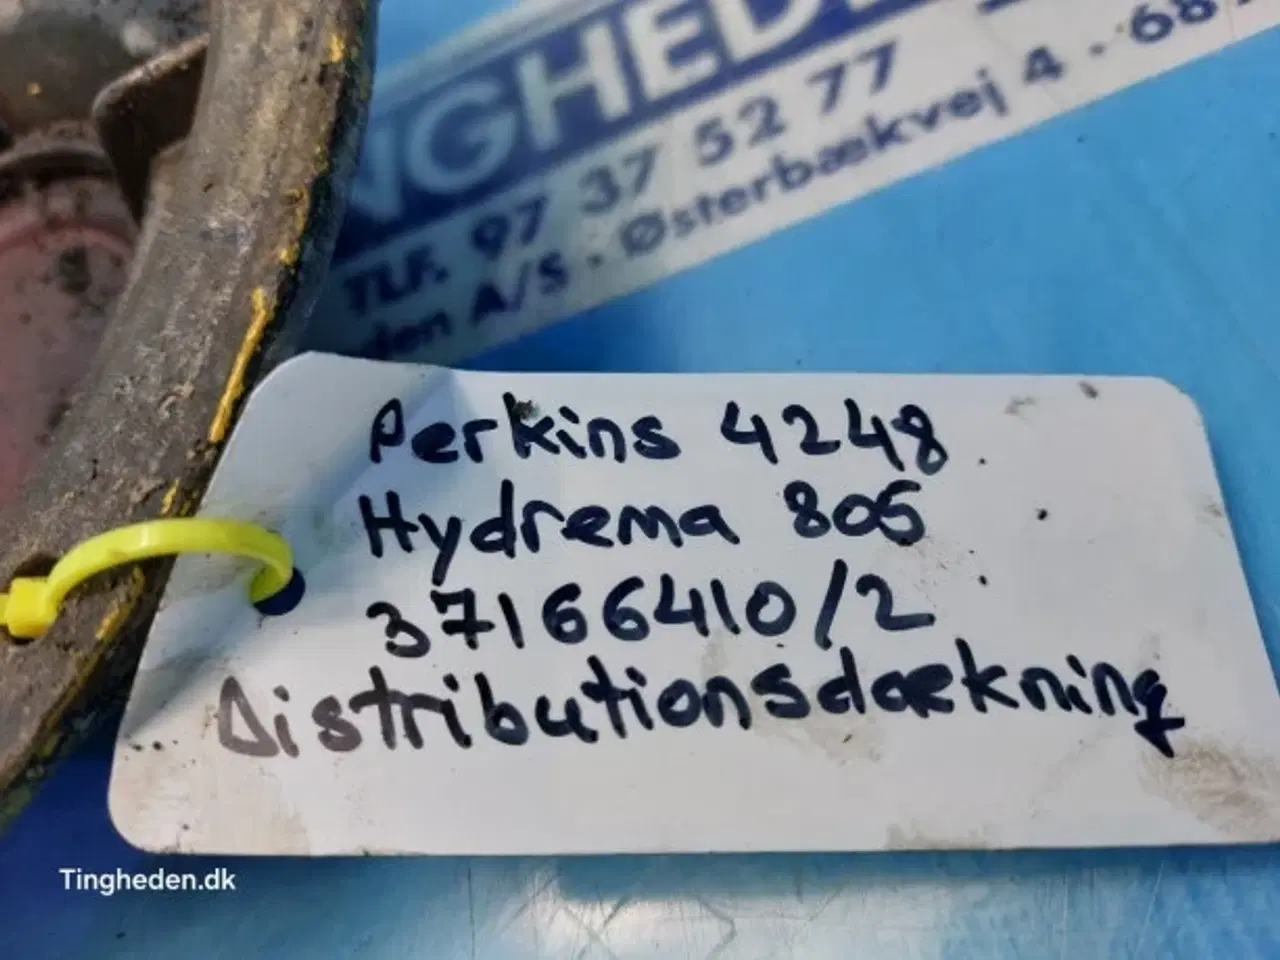 NGHED
TLF. 97 37 52 77
den A/S · Østerbækvej 4 · 687
Perkins 4248
Hydrema 805
37166410/2
Distributionsdækning
Tingheden.dk